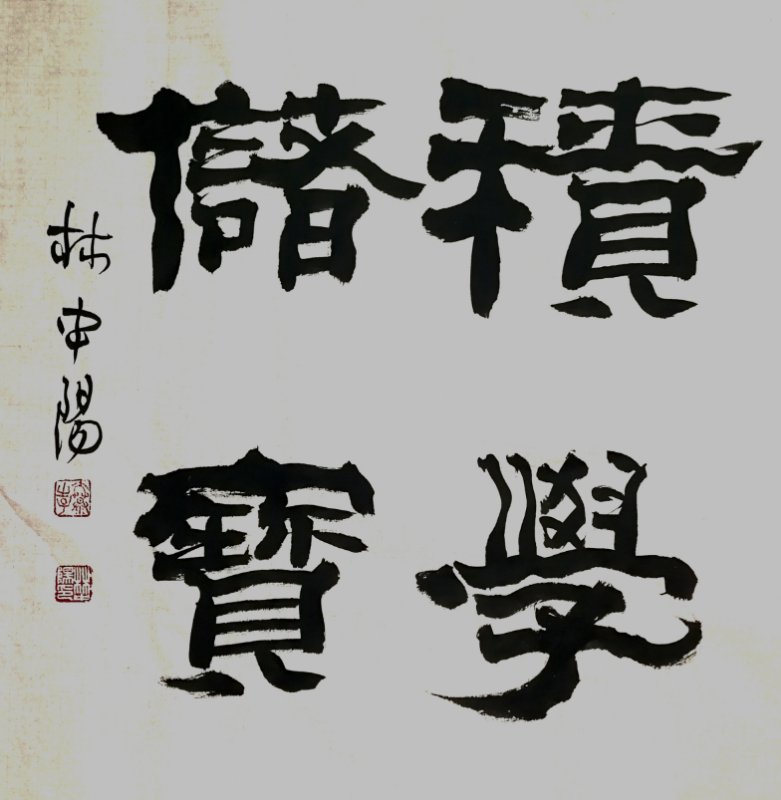 積學
儲寶
林申陽